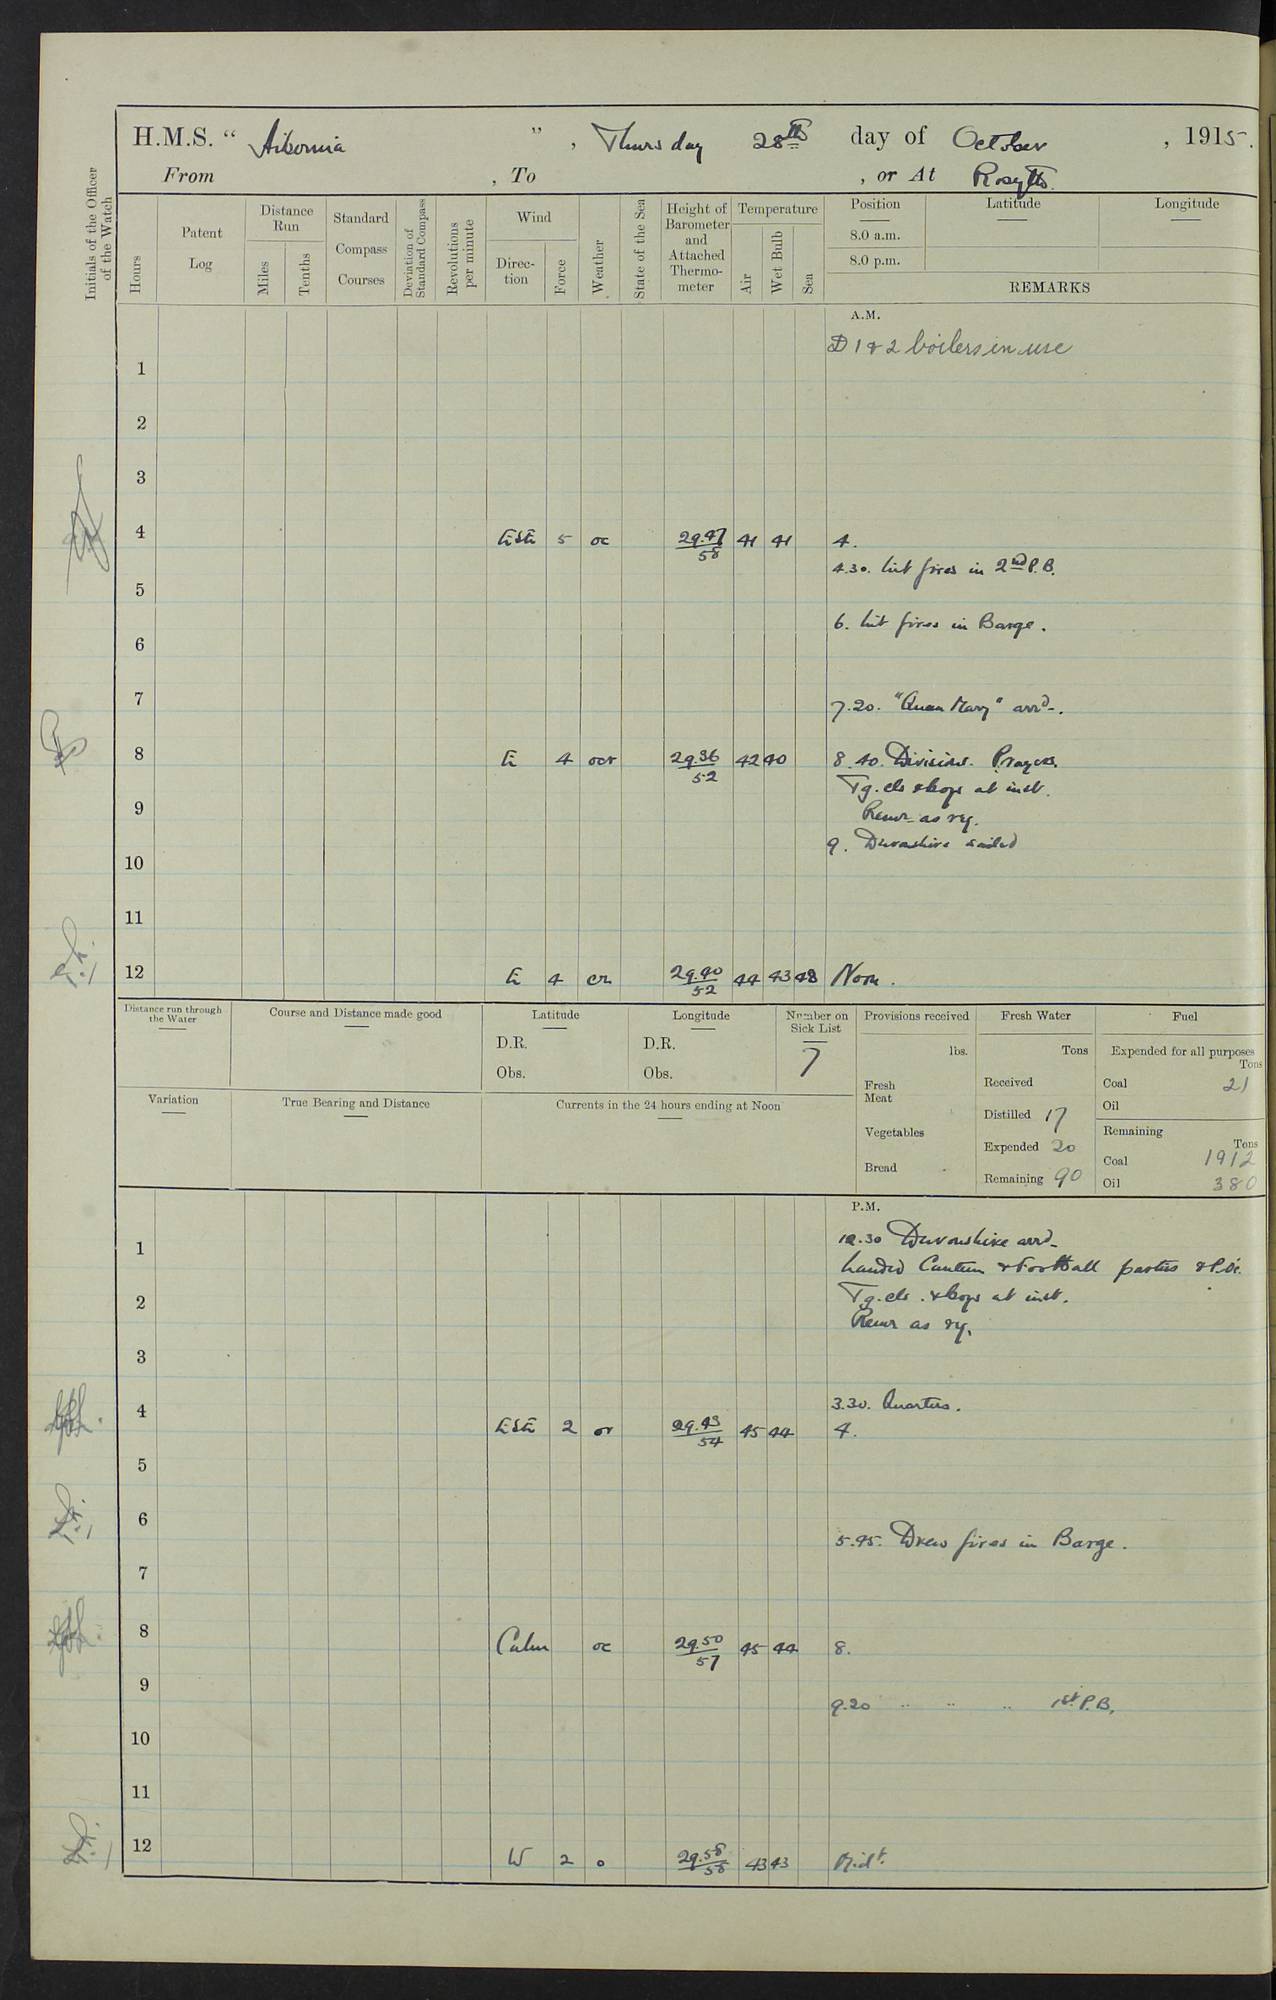 H.M.S. " Hibernia ", Thursday 28th day of October, 1915.
From , To , or At Rosyth.
Initials of the Officer of the Watch
Hours
Patent Log
Distance Run
Miles
Tenths
Standard Compass Courses
Deviation of Standard Compass
Revolutions per minute
Wind
Direction
Force
Weather
State of the Sea
Height of Barometer and Attached Thermometer
Temperature
Air
Wet Bulb
Sea
Position
8.0 a.m.
8.0 p.m.
Latitude
Longitude
REMARKS
A.M.
D 1 & 2 boilers in use
1
2
3
4 ESE 5 oc 29.47/58 41 41 4.
4.30. Lit fires in 2nd P.B.
5
6. Lit fires in Barge.
6
7
7.20. "Queen Mary" arrd.
8 E 4 ocr 29.36/52 42 40 8.40. Divisions. Prayers.
Tg. cls & boys at inst.
9
Remr as rq.
9. Devonshire sailed
10
11
12 E 4 cr 29.40/52 44 43 48 Noon.
Distance run through the Water
Course and Distance made good
Latitude
D.R.
Obs.
Longitude
D.R.
Obs.
Number on Sick List
7
Provisions received
lbs.
Fresh Meat
Vegetables
Bread
Fresh Water
Tons
Received
Distilled 17
Expended 20
Remaining 90
Fuel
Expended for all purposes
Tons
Coal 21
Oil
Remaining
Tons
Coal 1912
Oil 380
Variation
True Bearing and Distance
Currents in the 24 hours ending at Noon
P.M.
12.30 Devonshire arrd
1
Landed Canteen & Football parties
2
Tg. cls. & boys at inst.
Remr as rq.
3
3.30. Quarters.
4 ESE 2 or 29.43/54 45 44 4.
5
6
5.45. Drew fires in Barge.
7
8 Calm oc 29.50/57 45 44 8.
9
9.20 " " " 1st P.B.
10
11
12 W 2 o 29.58/58 43 43 Midt.